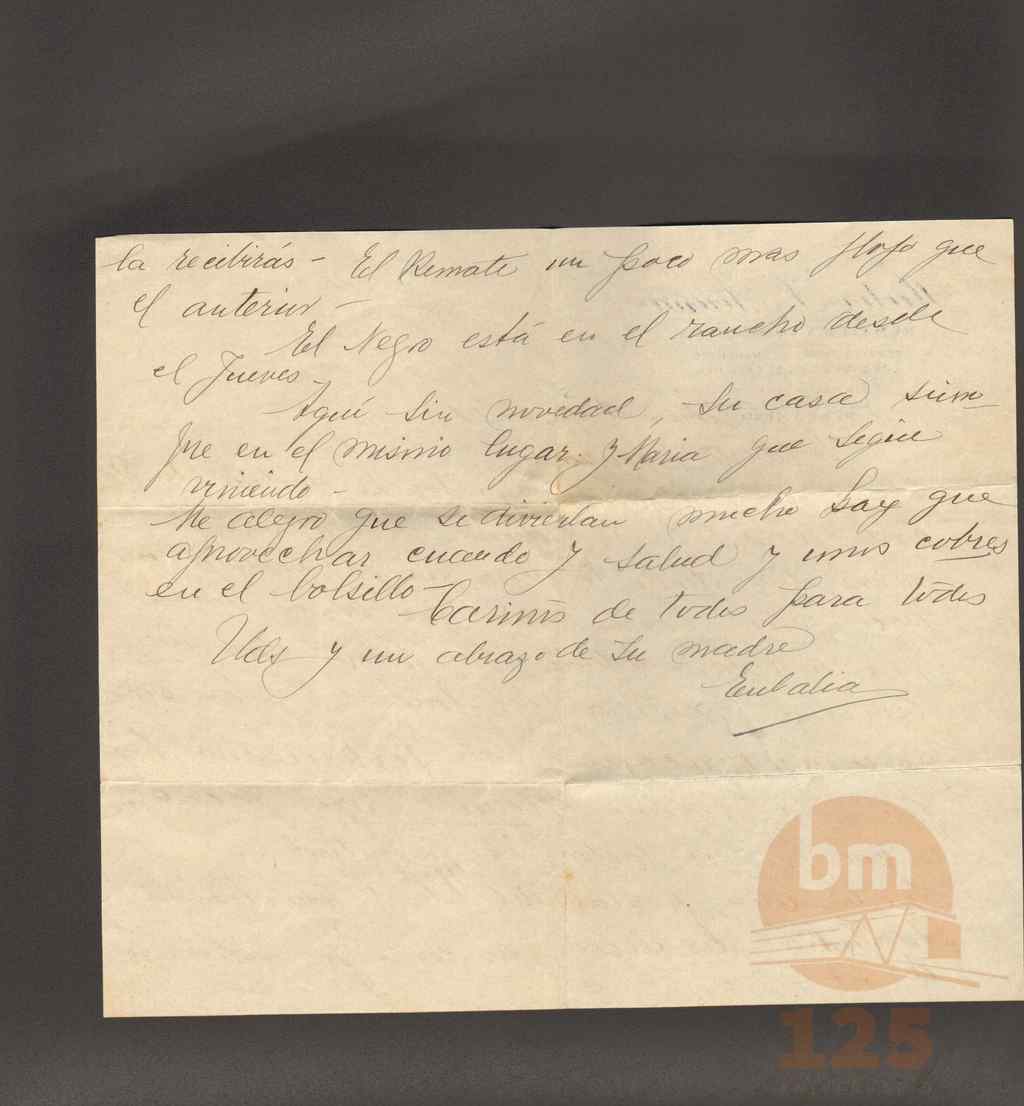 la recibirás - El Remate un poco mas flojo que
el anterior -
El Negro está en el rancho desde
el Jueves -
Aqui sin novedad, su casa siem-
pre en el mismo lugar. y Maria que sigue
viniendo -
Me alegro que se diviertan mucho hay que
aprovechar cuando y salud y unos cobres
en el bolsillo -
Cariños de todos para todos
Uds y un abrazo de su madre
Eulalia
bm
125